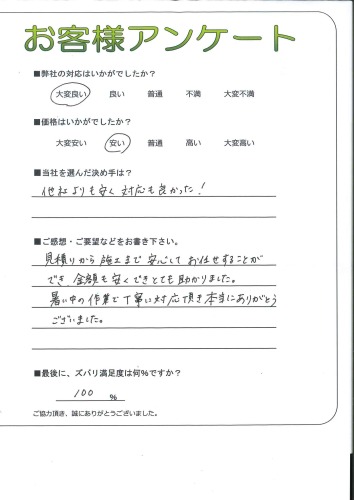 お客様アンケート
■弊社の対応はいかがでしたか？
大変良い 良い 普通 不満 大変不満
■価格はいかがでしたか？
大変安い 安い 普通 高い 大変高い
■当社を選んだ決め手は？
他社よりも安く対応も良かった！
■ご感想・ご要望などをお書き下さい。
見積りから施工まで安心してお任せすることが
でき、金額も安くできとても助かりました。
暑い中の作業で丁寧に対応頂き本当にありがとう
ございました。
■最後に、ズバリ満足度は何％ですか？
100 %
ご協力頂き、誠にありがとうございました。